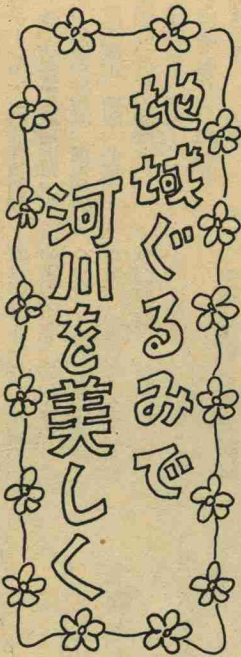 地域ぐるみで
河川を美しく